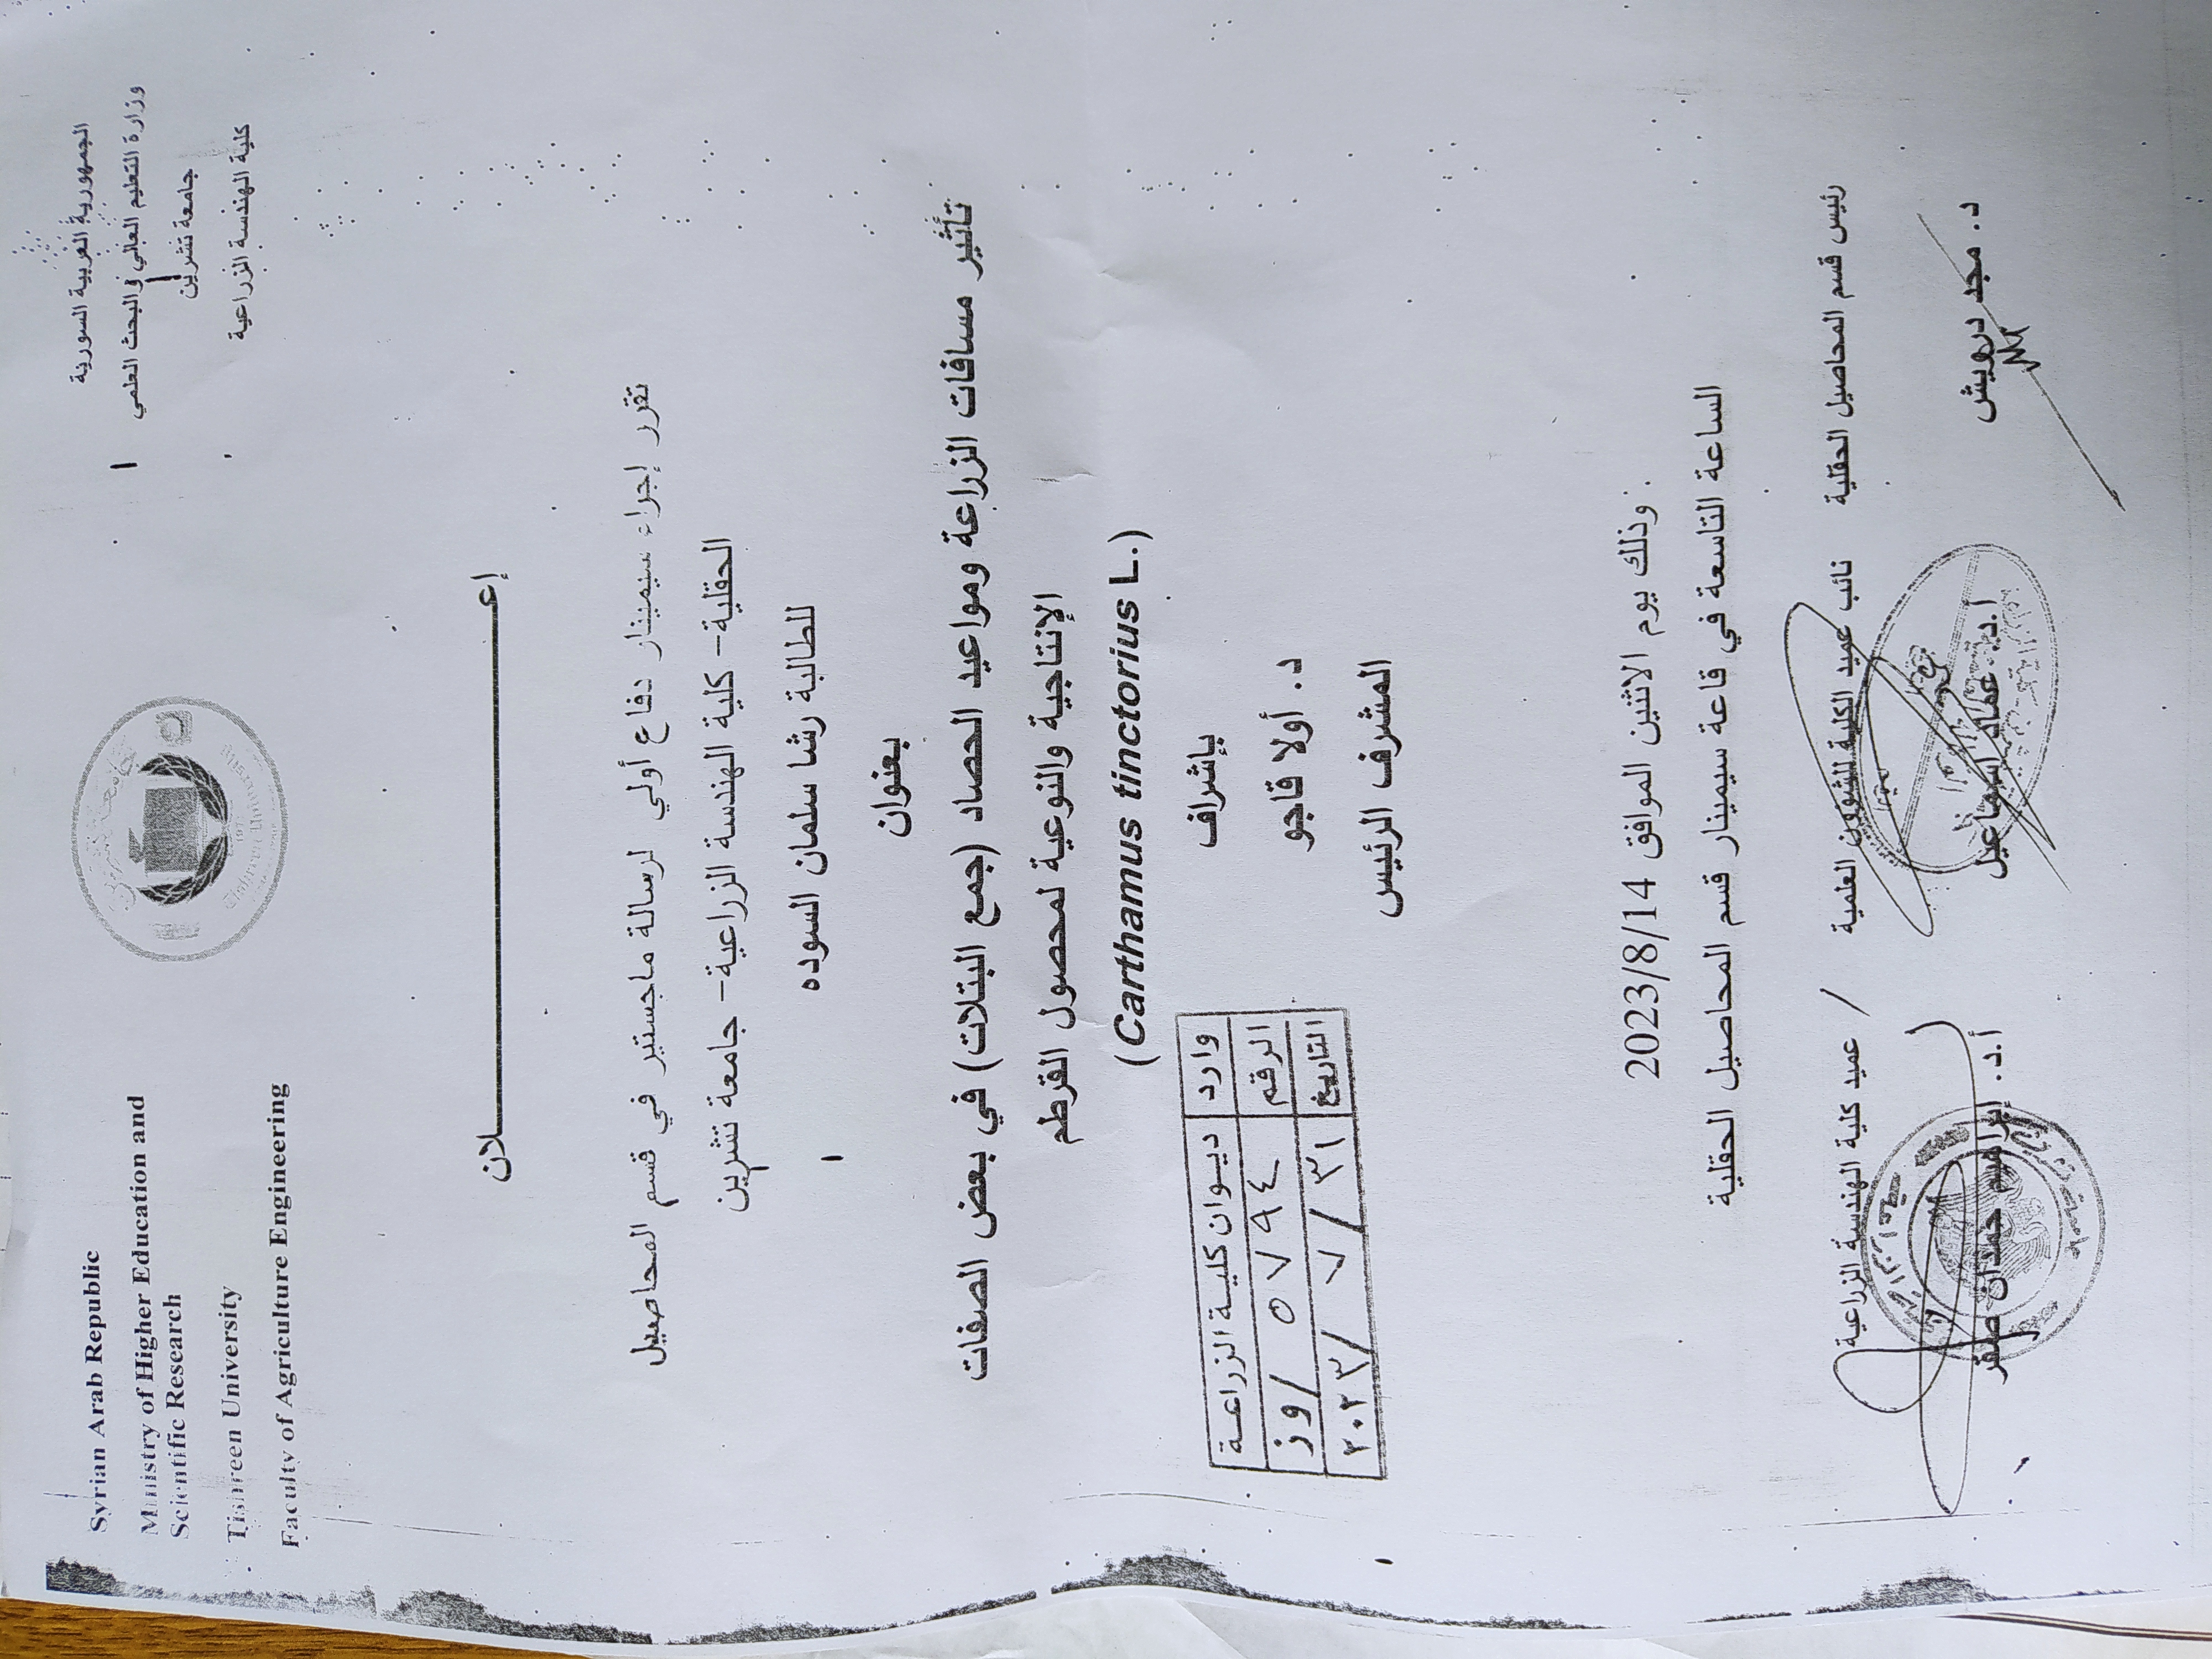 الجمهورية العربية السورية
وزارة التعليم العالي والبحث العلمي
جامعة تشرين
كلية الهندسة الزراعية
Syrian Arab Republic
Ministry of Higher Education and
Scientific Research
Tishreen University
Faculty of Agriculture Engineering
إعـــــــــــــــــــــــــلان
تقرر إجراء سيمينار دفاع أولي لرسالة ماجستير في قسم المحاصيل
الحقلية- كلية الهندسة الزراعية- جامعة تشرين
للطالبة رشا سلمان السوده
بعنوان
تأثير مسافات الزراعة ومواعيد الحصاد (جمع البتلات) في بعض الصفات
الإنتاجية والنوعية لمحصول القرطم
(Carthamus tinctorius L.)
بإشراف
د. أولا قاجو
المشرف الرئيس
وارد ديوان كلية الزراعة
الرقم ٥٧٩٤ / وز
التاريخ ٣١ / ٧ / ٢٠٢٣
وذلك يوم الاثنين الموافق 2023/8/14
الساعة التاسعة في قاعة سيمينار قسم المحاصيل الحقلية
رئيس قسم المحاصيل الحقلية نائب عميد الكلية للشؤون العلمية / عميد كلية الهندسة الزراعية
د. مجد درويش أ.د. عماد اسماعيل أ.د. إبراهيم حمدان صقر